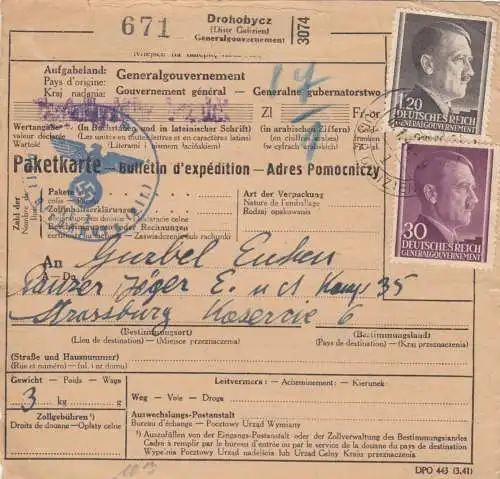 671
Drohobycz
(Distr Galizien)
Generalgouvernement
3074
Aufgabeland:
Pays d'origine:
Kraj nadania:
Generalgouvernement
Gouvernement général – Generalne gubernatorstwo
Wertangabe
valeur déclarée
Wartość
(in Buchstaben und in lateinischer Schrift)
(Les autres en toutes lettres et en caractères latins)
(Literami i pismem łacińskiem)
Zl
(in arabischen Ziffern)
(en chiffres arabes)
(w cyfrach arabskich)
Fr-or
Paketkarte – Bulletin d'expédition – Adres Pomocniczy
Zahl der
Pakete
Zollinhaltserklärungen
Bescheinigungen oder Rechnungen
Zaświadczenia lub rachunki
Art der Verpackung
Nature de l'emballage
Rodzaj opakowania
1.20
DEUTSCHES REICH
GENERALGOUVERNEMENT
30
DEUTSCHES REICH
GENERALGOUVERNEMENT
An
A – Do
Panzer Jäger E. u. A Komp 35
Strassburg Kaserne 6
(Bestimmungsort)
(Lieu de destination) – (Miejsce przeznaczenia)
(Bestimmungsland)
(Pays de destination) – (Kraj przeznaczenia)
(Straße und Hausnummer)
(Rue et numéro) – (ul. i nr domu)
Gewicht – Poids – Waga
3 kg g
Leitvermerk: – Acheminement: – Kierunek:
Weg – Voie – Droga
Zollgebühren ¹)
Droits de douane – Opłaty celne
Auswechslungs-Postanstalt
Bureau d'échange – Pocztowy Urząd Wymiany
¹) Auszufüllen von der Eingangs-Postanstalt oder der Zollverwaltung des Bestimmungslandes
Cadre à remplir par le bureau d'entrée ou par le service de la douane du pays de destination
Wypełnia Pocztowy Urząd nadejścia lub Urząd Celny Kraju przeznaczenia
DPO 443 (3.41)